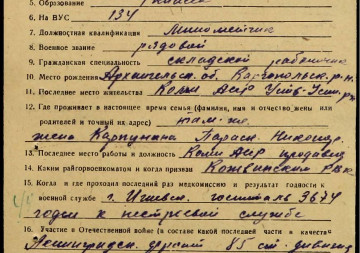 5. Образование
6. На ВУС 134
7. Должностная квалификация Минометчик
8. Военное звание рядовой
9. Гражданская специальность складской работник
10. Место рождения Архангельск. об. Каргопольск. р-н
11. Последнее место жительства Коми Аср Усть-Усин.
12. Где проживает в настоящее время семья (фамилия, имя и отчество жены или
родителей и точный их адрес) там-же
жена Карпунина Параск. Никандр.
13. Последнее место работы и должность Коми Аср продавец
14. Каким райгорвоенкоматом и когда призван Кожвинским РВК
15. Когда и где проходил последний раз медкомиссию и результат годности к
военной службе г. Ижевск. госпиталь 3674
годен к нестроевой службе
16. Участие в Отечественной войне (в составе какой последней части и качестве)
Ленинградск. фронт 85 ст. дивизия